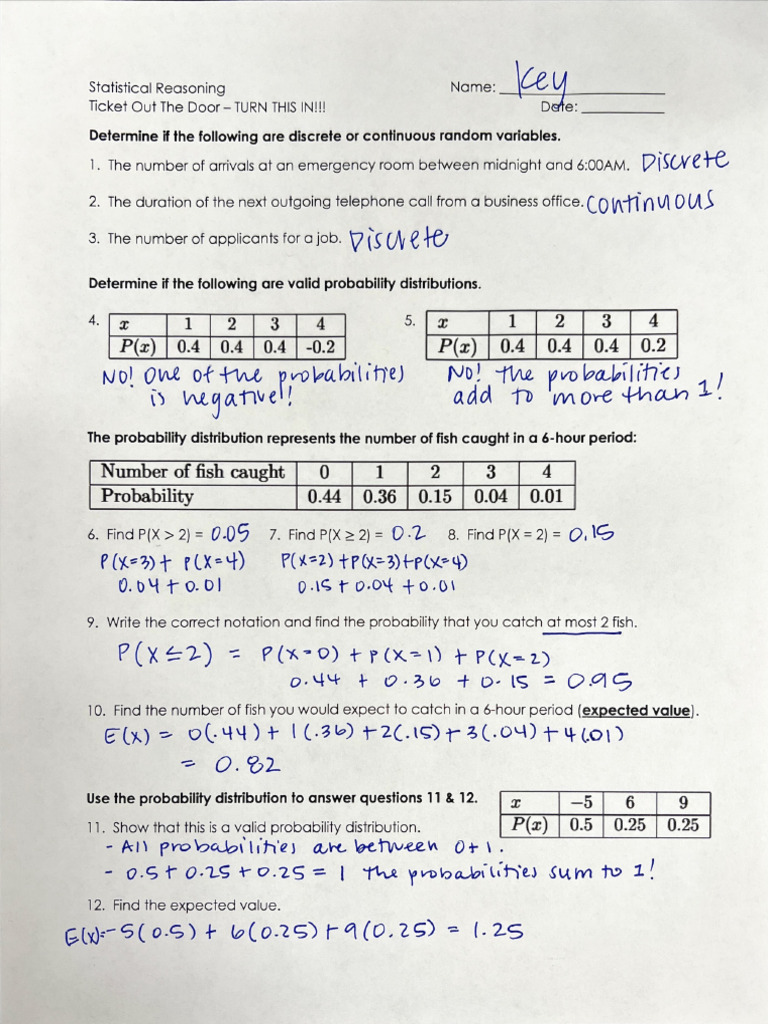 Statistical Reasoning Name: Key
Ticket Out The Door – TURN THIS IN!!! Date: ________
Determine if the following are discrete or continuous random variables.
1. The number of arrivals at an emergency room between midnight and 6:00AM. Discrete
2. The duration of the next outgoing telephone call from a business office. Continuous
3. The number of applicants for a job. Discrete
Determine if the following are valid probability distributions.
4. x 1 2 3 4
P(x) 0.4 0.4 0.4 -0.2
NO! One of the probabilities
is negative!
5. x 1 2 3 4
P(x) 0.4 0.4 0.4 0.2
NO! The probabilities
add to more than 1!
The probability distribution represents the number of fish caught in a 6-hour period:
Number of fish caught 0 1 2 3 4
Probability 0.44 0.36 0.15 0.04 0.01
6. Find P(X > 2) = 0.05
P(X=3) + P(X=4)
0.04 + 0.01
7. Find P(X ≥ 2) = 0.2
P(X=2) + P(X=3) + P(X=4)
0.15 + 0.04 + 0.01
8. Find P(X = 2) = 0.15
9. Write the correct notation and find the probability that you catch at most 2 fish.
P(X ≤ 2) = P(X=0) + P(X=1) + P(X=2)
0.44 + 0.36 + 0.15 = 0.95
10. Find the number of fish you would expect to catch in a 6-hour period (expected value).
E(X) = 0(.44) + 1(.36) + 2(.15) + 3(.04) + 4(.01)
= 0.82
Use the probability distribution to answer questions 11 & 12.
x −5 6 9
P(x) 0.5 0.25 0.25
11. Show that this is a valid probability distribution.
- All probabilities are between 0 + 1.
- 0.5 + 0.25 + 0.25 = 1 The probabilities sum to 1!
12. Find the expected value.
E(X) = -5(0.5) + 6(0.25) + 9(0.25) = 1.25